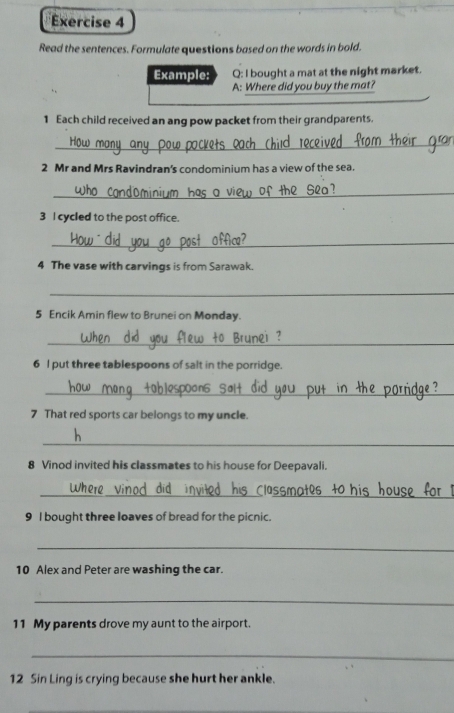 Exercise 4
Read the sentences. Formulate questions based on the words in bold.
Example: Q: I bought a mat at the night market.
A: Where did you buy the mat?
1 Each child received an ang pow packet from their grandparents.
How many any pow pockets each child received from their gran
2 Mr and Mrs Ravindran's condominium has a view of the sea.
Who condominium has a view of the sea?
3 I cycled to the post office.
How did you go post office?
4 The vase with carvings is from Sarawak.
5 Encik Amin flew to Brunei on Monday.
When did you flew to Brunei ?
6 I put three tablespoons of salt in the porridge.
how many tablespoons salt did you put in the porridge?
7 That red sports car belongs to my uncle.
h
8 Vinod invited his classmates to his house for Deepavali.
Where vinod did invited his classmates to his house for
9 I bought three loaves of bread for the picnic.
10 Alex and Peter are washing the car.
11 My parents drove my aunt to the airport.
12 Sin Ling is crying because she hurt her ankle.